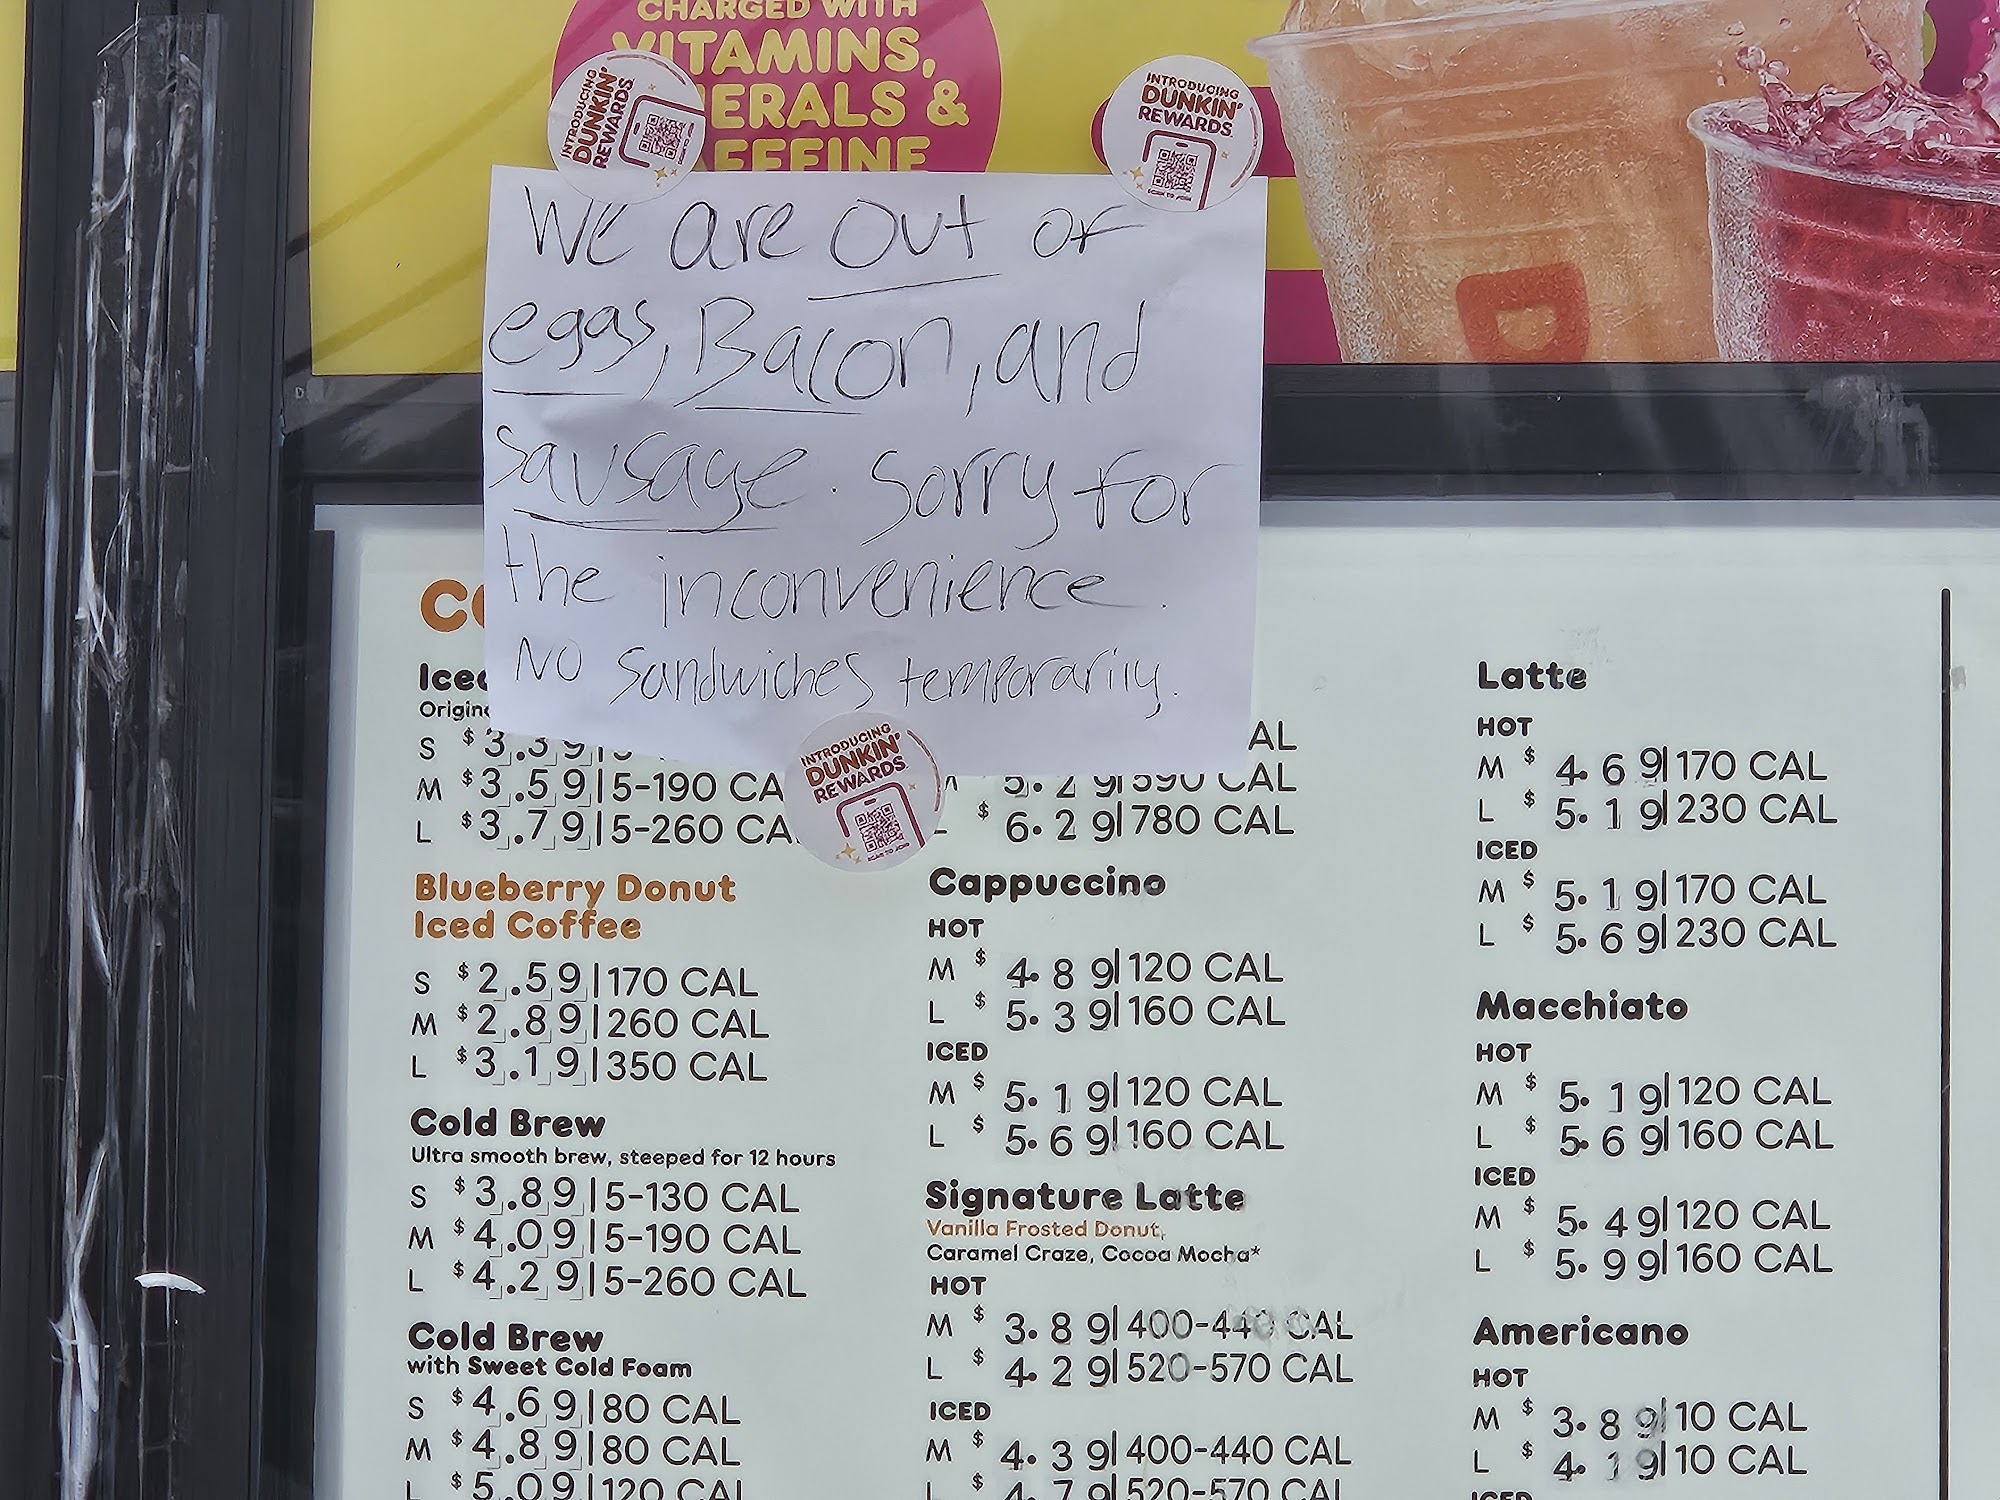 CHARGED WITH
VITAMINS,
ERALS &
INTRODUCING
DUNKIN'
REWARDS
INTRODUCING
DUNKIN'
REWARDS
SCAN TO JOIN
We are out of
eggs, Bacon, and
sausage. Sorry for
the inconvenience.
NO Sandwiches temporarily.
INTRODUCING
DUNKIN'
REWARDS
SCAN TO JOIN
Iced
S $3.39|5
M $3.59|5-190 CA
L $3.79|5-260 CA
Blueberry Donut
Iced Coffee
S $2.59|170 CAL
M $2.89|260 CAL
L $3.19|350 CAL
Cold Brew
Ultra smooth brew, steeped for 12 hours
S $3.89|5-130 CAL
M $4.09|5-190 CAL
L $4.29|5-260 CAL
Cold Brew
with Sweet Cold Foam
S $4.69|80 CAL
M $4.89|80 CAL
L $5.09|120 CAL
AL
M 5.29|590 CAL
L $6.29|780 CAL
Cappuccino
HOT
M $4.89|120 CAL
L $5.39|160 CAL
ICED
M $5.19|120 CAL
L $5.69|160 CAL
Signature Latte
Vanilla Frosted Donut,
Caramel Craze, Cocoa Mocha*
HOT
M $3.89|400-440 CAL
L $4.29|520-570 CAL
ICED
M $4.39|400-440 CAL
L $4.79|520-570 CAL
Latte
HOT
M $4.69|170 CAL
L $5.19|230 CAL
ICED
M $5.19|170 CAL
L $5.69|230 CAL
Macchiato
HOT
M $5.19|120 CAL
L $5.69|160 CAL
ICED
M $5.49|120 CAL
L $5.99|160 CAL
Americano
HOT
M $3.89|10 CAL
L $4.19|10 CAL
ICED